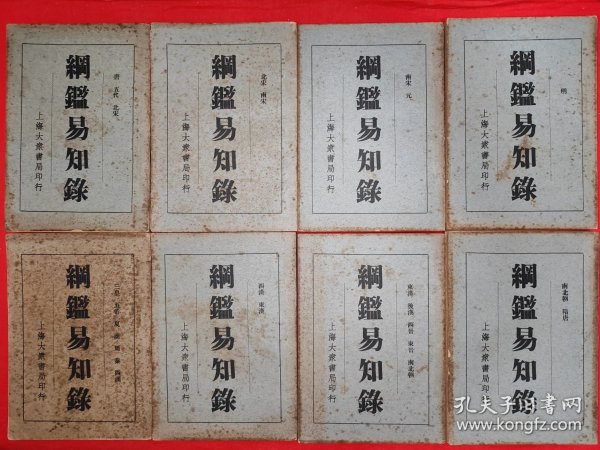 唐 五代 北宋
綱鑑易知錄
上海大眾書局印行
北宋 南宋
綱鑑易知錄
上海大眾書局印行
南宋 元
綱鑑易知錄
上海大眾書局印行
明
綱鑑易知錄
上海大眾書局印行
三皇 五帝 夏 商 周 秦 西漢
綱鑑易知錄
上海大眾書局印行
西漢 東漢
綱鑑易知錄
上海大眾書局印行
東漢 後漢 西晉 東晉 南北朝
綱鑑易知錄
上海大眾書局印行
南北朝 隋唐
綱鑑易知錄
上海大眾書局印行
孔夫子旧书网
www.kongfz.com